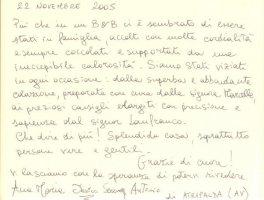 22 NOVEMBRE 2005
Più che in un B&B ci è sembrato di essere
stati in famiglia, accolti con molta cordialità
e sempre coccolati e supportati da una
ineccepibile calorosità. Siamo stati viziati
in ogni occasione: dalla superba e abbondante
colazione, preparata con cura dalla signora
ai preziosi consigli elargiti con precisione e
sapienza dal signor Gianfranco.
Che dire di più! Splendida casa, soprattutto
persone vere e gentili.
Grazie di cuore!
Vi lasciamo con la speranza di potervi rivedere
Anna Maria Antonio
di ATRIPALDA (AV)